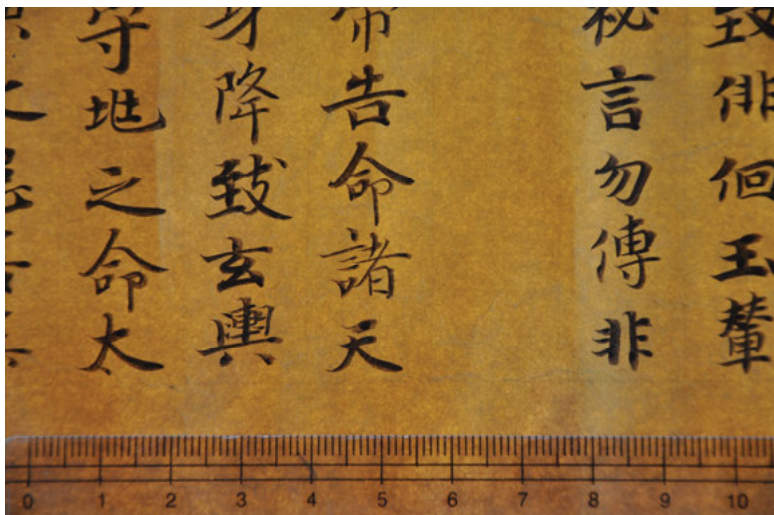 致徘徊玉輦
祕言勿傳非
帝告命諸天
身降致玄輿
守地之命太
0 1 2 3 4 5 6 7 8 9 10